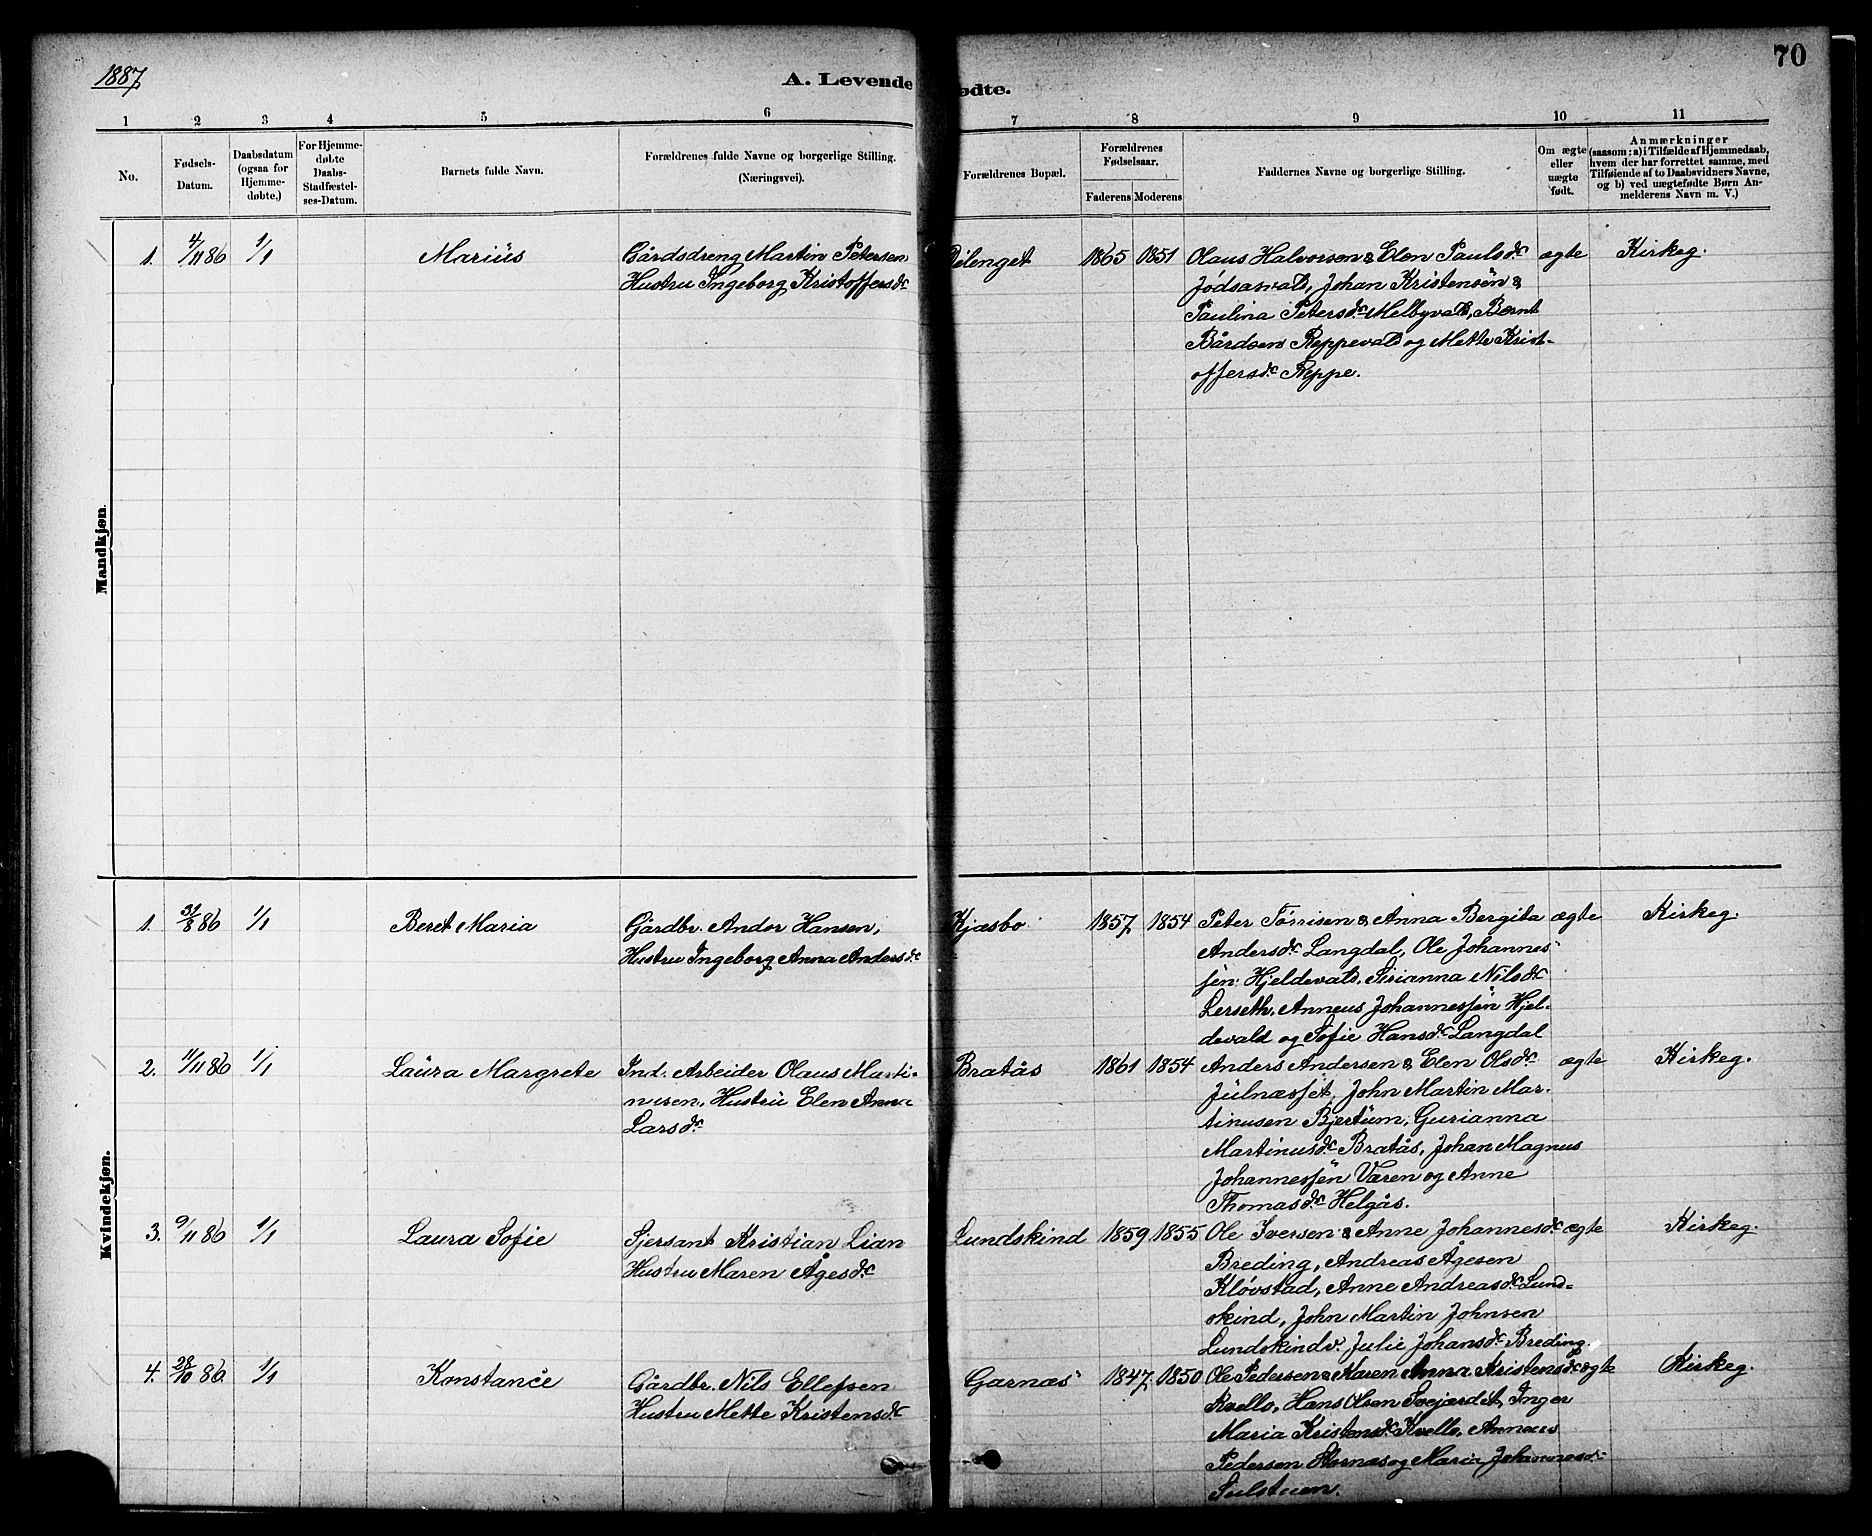 1887
A. Levende ødte.
70
1 2 3 4 5 6 7 8 9 10 11
No.
Fødsels-
Datum.
Daabsdatum
(ogsaa for
Hjemme-
døbte.)
For Hjemme-
døbte
Daabs-
Stadfæstel-
ses-Datum.
Barnets fulde Navn.
Forældrenes fulde Navne og borgerlige Stilling.
(Næringsvei).
Forældrenes Bopæl.
Forældrenes
Fødselsaar.
Faderens Moderens
Faddernes Navne og borgerlige Stilling.
Om ægte
eller
uægte
født.
Anmærkninger
(saasom: a) i Tilfælde af Hjemmedaab,
hvem der har forrettet samme, med
Tilføiende af to Daabsvidners Navne,
og b) ved uægtefødte Børn An-
melderens Navn m. V.)
Mandkjøn.
1. 4/11 86 1/1 Marius
Gårdsdreng Martin Petersen
Hustru Ingeborg Kristoffersdr
1865 1851
Olaus Halvorsen & Elen Paulsdr
Jødsasvald, Johan Kristensen &
Paulina Petersdr Melbyvald, Bernt
Bårdsen Reppevald og Mette Krist-
offersdr Reppe.
ægte
Kirkeg.
Kvindekjøn.
1. 31/8 86 1/1 Beret Maria
Gårdbr. Andor Hansen,
Hustru Ingeborg Anna Andersdr
Kjæsbo 1857 1854
Peter Tørrisen & Anna Bergita
Andersdr Langdal, Ole Johannes-
sen Hjeldevald, Sirianna Nilsdr
Lerseth, Anneus Johannessen Hjel-
devald og Sofie Hansdr Langdal
ægte
Kirkeg.
2. 11/11 86 1/1 Laura Margrete
Ind. Arbeider Olaus Marti-
nusen, Hustru Elen Anna
Larsdr
Bratås 1861 1854
Anders Andersen & Elen Olsdr
Julnæsset, John Martin Mar-
tinusen Bjertum, Gurianna
Martinusdr Bratås, Johan Magnus
Johannessen Væren og Anne
Thomasdr Helgås.
ægte
Kirkeg.
3. 9/11 86 1/1 Laura Sofie
Sjersant Kristian Lian
Hustru Maren Ågesdr
Lundskind 1859 1855
Ole Iversen & Anne Johannesdr
Breding, Andreas Ågesen
Kløvstad, Anne Andreasdr Lund-
skind, John Martin Johnsen
Lundskindv. Julie Johansdr Breding.
ægte
Kirkeg.
4. 28/10 86 1/1 Konstance
Gårdbr. Nils Ellefsen
Hustru Mette Kristensdr
Garnæs 1847 1850
Ole Pedersen & Karen Anna Kristensdr
Kvello, Hans Olsen Svejardet, Inger
Maria Kristensdr Kvello, Anneus
Pedersen og Maria Johannesdr
Sulstuen.
ægte
Kirkeg.